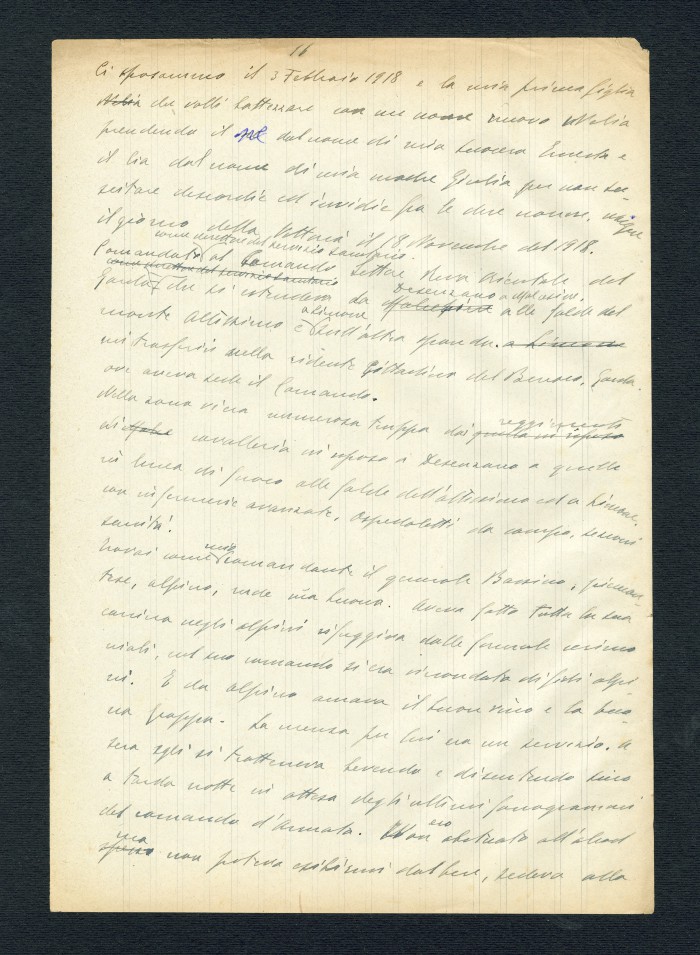 11
Ci sposammo il 3 Febbraio 1918 e la mia prima figlia
che volli battezzare con un nome nuovo Nelia
prendendo il dal nome di mia suocera Ernesta e
il lia dal nome di mia madre Giulia per non su
scitare discordie ed invidie fra le due nonne, nacque
il giorno della Vittoria il 18 Novembre del 1918.
come direttore del servizio sanitario.
Comandato al Comando Settore Riva Orientale del
come direttore del servizio sanitario
Desenzano a Malcesine,
Garda che si estendeva da Malcesine alle falde del
a Limone
monte Altissimo e sull'altra sponda. a Limone
mi trasferii nella ridente Cittadina del Benaco, Garda
ove aveva sede il Comando.
reggimenti
Nella zona v'era numerosa truppa dai quella in riposo
di cavalleria in riposo a Desenzano a quelle
in linea di fuoco alle falde dell'Altissimo ed a Limone,
con infermerie avanzate, Ospedaletti da campo, sezioni
sanità.
mio
Trovai come Comandante il generale Bassino, piemon
tese, alpino, rude ma buono. Aveva fatto tutta la sua
carriera negli alpini rifuggiva dalle formule cerimo
niali, nel suo comando si era circondato di soli alpi
ni. E da alpino amava il buon vino e la buo
na grappa. La mensa per lui era un servizio. A
sera egli si tratteneva bevendo e discutendo sino
a tarda notte in attesa degli ultimi fonogrammi
ero
del comando d'Armata. Non abituato all'alcool
ma
spesso non poteva esimermi dal bere, sedevo alla